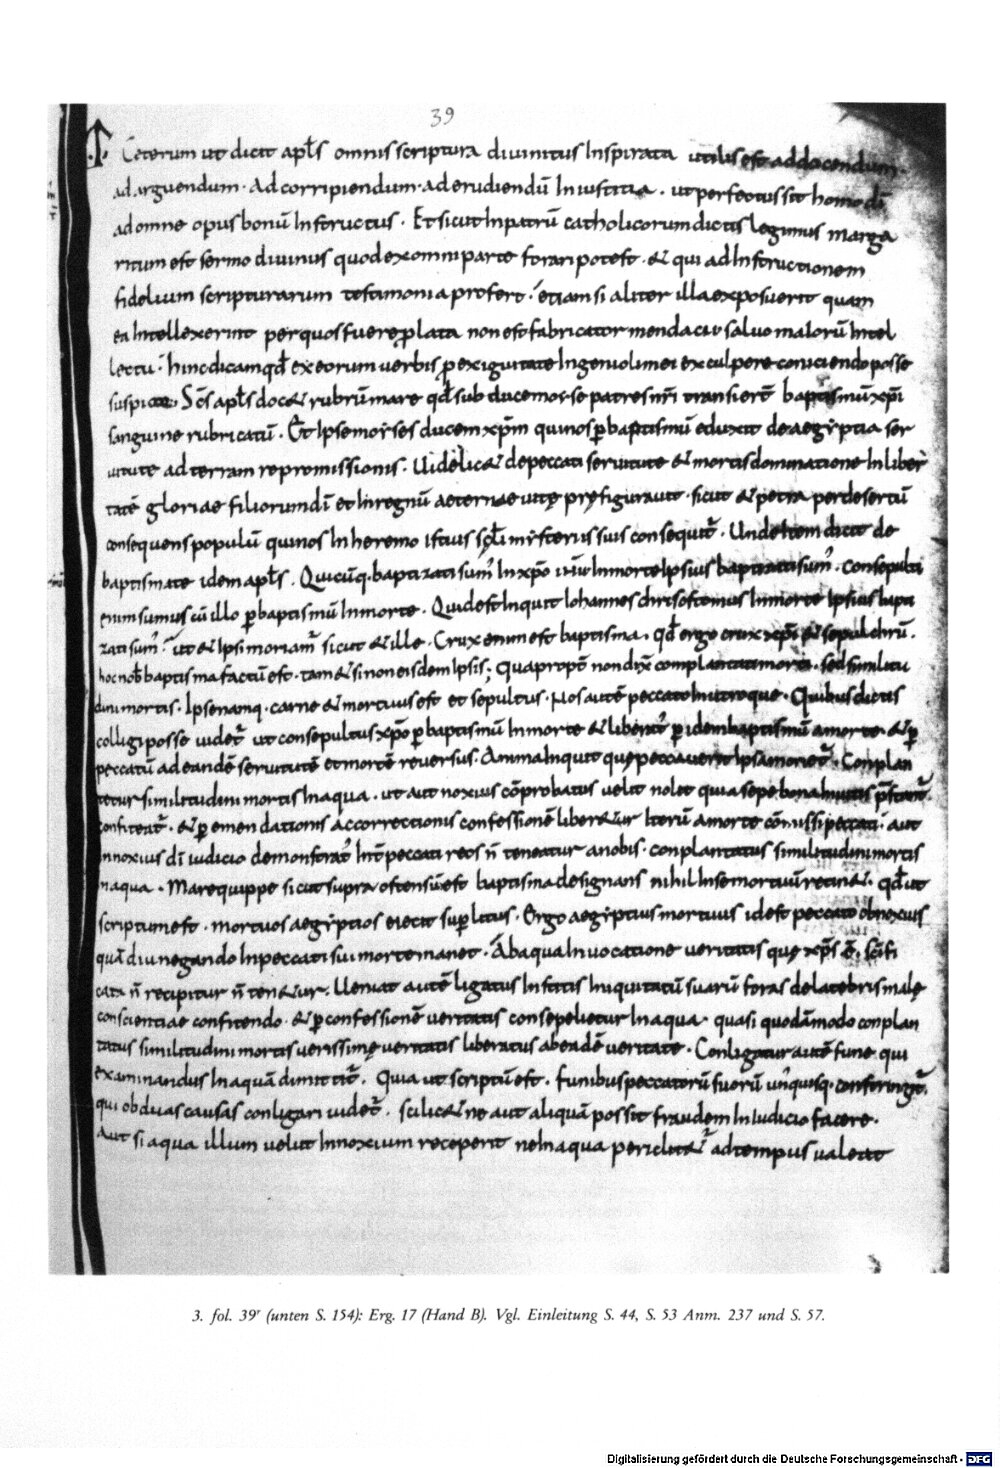 39
Ceterum ut dicit apl̄s omnis scriptura divinitus Inspirata utilis est ad docendum.
ad arguendum. Ad corripiendum. ad erudiendū In iustitia. ut perfectus sit homo dī
ad omne opus bonū Instructus. Et sicut In patrū catholicorum dictis legimus marga
ritum est sermo divinus quod ex omni parte forari potest. & qui ad Instructionem
fidelium scripturarum testimonia profert. etiam si aliter illa exposuerit quam
ea Intellexerint per quos fuere plata non est fabricator mendacii salvo malorū Intel
lectu. hinc dicam qđ ex eorum verbis p exiguitate Ingenioli mei exculpere coniciendo posse
suspicor. Scs̄ apl̄s doc& rubrū mare qđ sub duce moyse patres nr̄i transierт̄ baptismū xpī
sanguine rubricatū. Et Ipse moyses ducem xpm̄ qui nos p baptismū eduxit de aegyptia ser
vitute ad terram repromissionis. Videlic& de peccati servitute & mortis dominatione In liber
tatē gloriae filiorum dī et In regnū aeternae vitę pręfiguravit. sicut & petra per desertū
consequens populū qui nos In heremo istius scl̄i mysteriis suis consequit̄. Unde Item dicit de
baptismate idem apl̄s. Quicūq. baptizati sum̄ In xpo ihū In morte Ipsius baptizati sum̄. Consepulti
enim sumus cū illo p baptismū In morte. Quid est Inquit Iohannes chrisostomus In morte Ipsius bapti
zati sum̄. ut & Ipsi moriam̄ sicut & ille. Crux enim est baptisma. qđ ergo crux xpī & sepulchrū.
hoc nob̄ baptisma factū est. tam&si non eisdem Ipsis; Quapropt̄ non dix̄ complantati morti. sed similitu
dini mortis. Ipse namq. carne & mortuus est et sepultus. Nos autē peccato In utroque. Quibus dictis
colligi posse videt̄ ut consepultus xpo p baptismū In morte & liberat̄ p idem baptismū a morte. & p
peccatū ad eandē servitutē et mortē reversus. Anima Inquit quę peccaverit Ipsa moriet̄. Conplan
tetur similitudini mortis In aqua. ut aut noxius cōprobatus velit nolit quia sepe bona Invitis pr̄stant̄.
confiteat̄. & p emendationis ac correctionis confessionē liber&ur Iterū a morte cōmissi peccati. aut
Innoxius dī iudicio demonstrat̄ Int̄ peccati reos n̄ teneatur a nobis. conplantatus similitudini mortis
In aqua. Mare quippe sicut supra ostensū est baptisma designans nihil In se mortuū retin&. qđ ut
scriptum est. mortuos aegyptios eiecit sup litus. Ergo aegyptius mortuus id est peccato obnoxius
quādiu negando In peccati sui morte manet. Ab aqua Invocatione veritatis quę xps̄ ē. scīfi
cata n̄ recipitur n̄ ten&ur. Veniat autē ligatus In fetis Iniquitatū suarū foras de latebris malę
conscientiae confitendo. & p confessionē veritatis consepelietur In aqua. quasi quodāmodo conplan
tatus similitudini mortis verissimę veritatis liberatus ab eadē veritate. Conligatur autē fune qui
examinandus In aquā dimittit̄. Quia ut scriptū est. funibus peccatorū suorū un̄quisq. constringit̄.
qui ob duas causas conligari videt̄. scilic& ne aut aliquā possit fraudem In Iudicio facere.
Aut si aqua illum velut Innoxium receperit ne In aqua periclit&ur ad tempus valeat
3. fol. 39ʳ (unten S. 154): Erg. 17 (Hand B). Vgl. Einleitung S. 44, S. 53 Anm. 237 und S. 57.
Digitalisierung gefördert durch die Deutsche Forschungsgemeinschaft - DFG